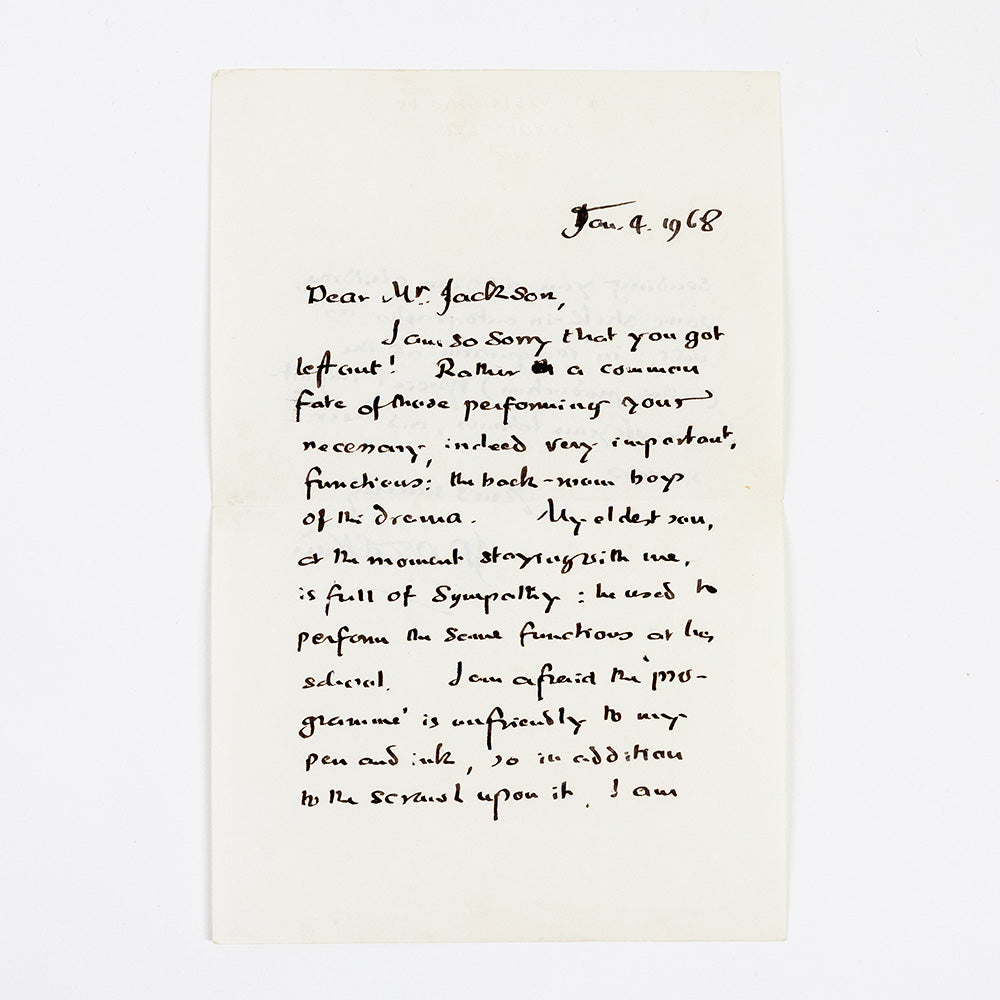 Jan. 4. 1968
Dear Mr. Jackson,
I am so sorry that you got
left out! Rather a common
fate of those performing your
necessary, indeed very important,
functions: the back-room boys
of the drama. My eldest son,
at the moment staying with me,
is full of sympathy: he used to
perform the same functions at his
school. I am afraid the 'pro-
gramme' is unfriendly to my
pen and ink, so in addition
to the scrawl upon it, I am